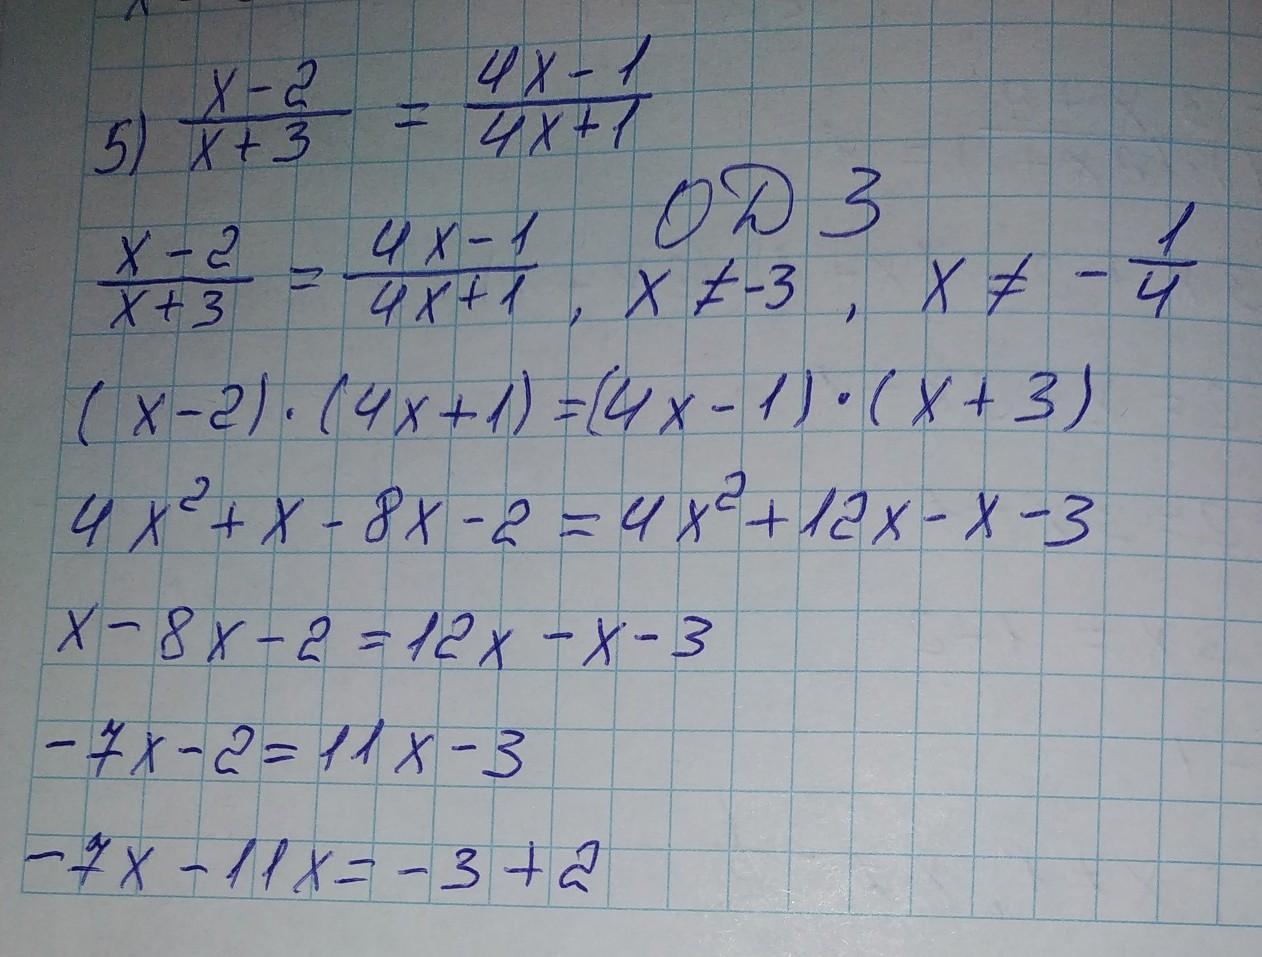 5) (x-2)/(x+3) = (4x-1)/(4x+1)
ОДЗ
(x-2)/(x+3) = (4x-1)/(4x+1) , x ≠ -3 , x ≠ - 1/4
(x-2)·(4x+1)=(4x-1)·(x+3)
4x²+x-8x-2=4x²+12x-x-3
x-8x-2=12x-x-3
-7x-2=11x-3
-7x-11x=-3+2